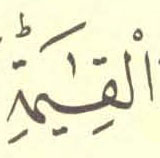 الْقِيَٰمَةِ ؕ